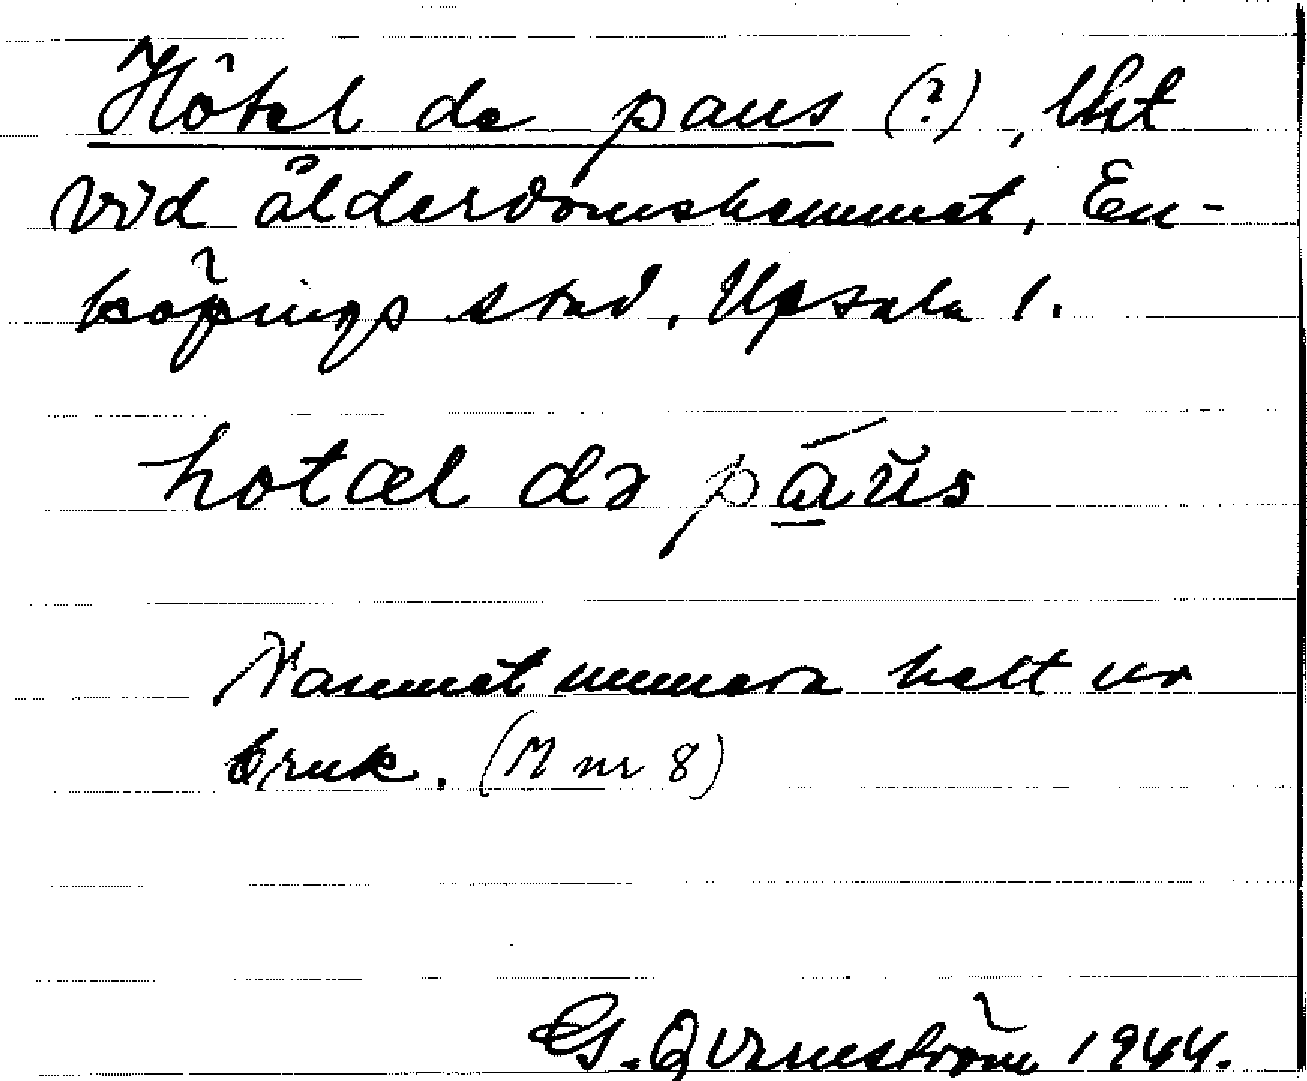 Hôtel de paus (?), lht
vid ålderdomshemmet, En-
köpings stad, Upsala l.
hotæl də páu̯s
Namnet numera helt ur
bruk. (M nr 8)
G. Qvarnström 1944.